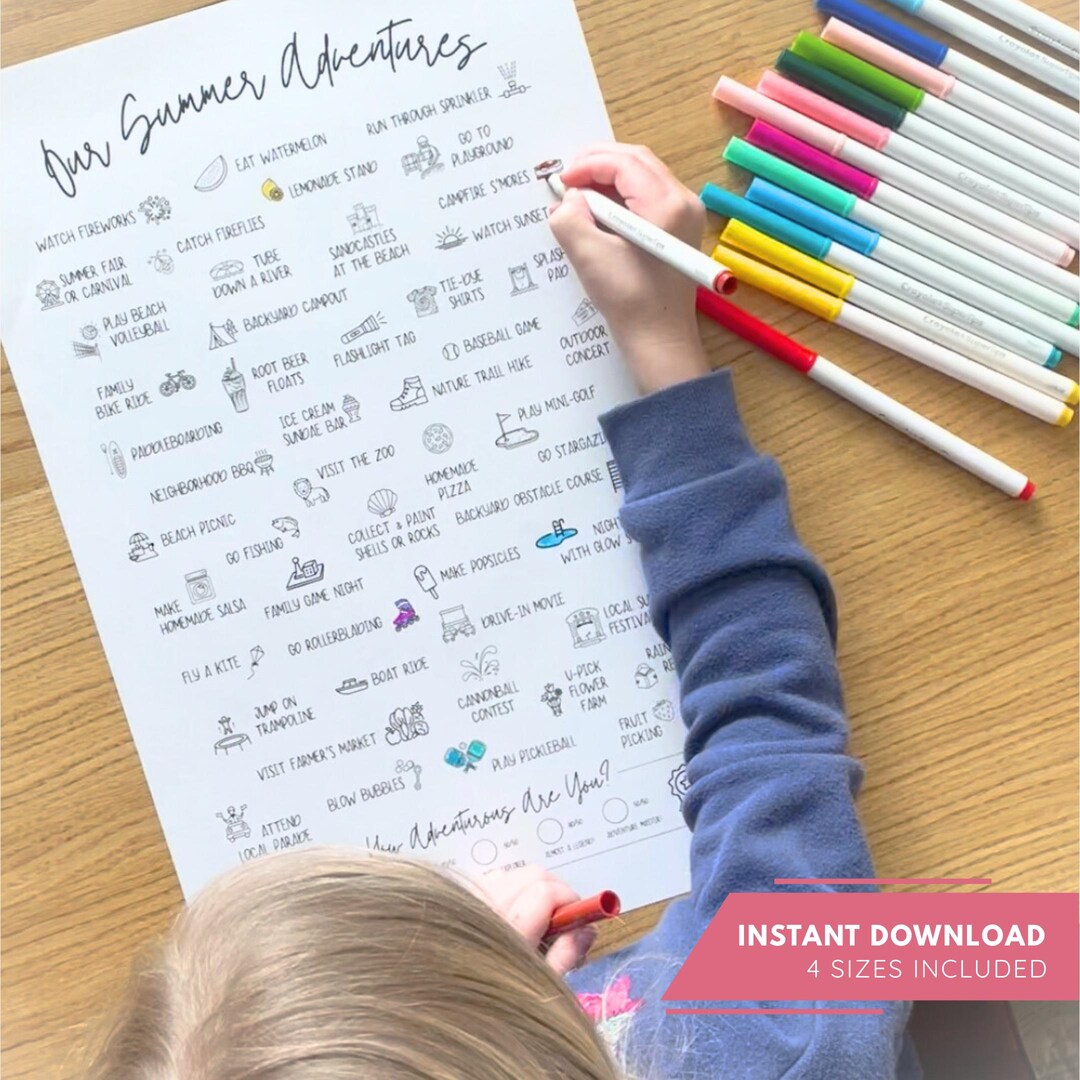 Our Summer Adventures
RUN THROUGH SPRINKLER
EAT WATERMELON
GO TO
PLAYGROUND
LEMONADE STAND
CAMPFIRE S'MORES
WATCH FIREWORKS
CATCH FIREFLIES
SANDCASTLES
AT THE BEACH
WATCH SUNSET
SUMMER FAIR
OR CARNIVAL
TUBE
DOWN A RIVER
TIE-DYE
SHIRTS
SPLASH
PAD
PLAY BEACH
VOLLEYBALL
BACKYARD CAMPOUT
FLASHLIGHT TAG
BASEBALL GAME
OUTDOOR
CONCERT
FAMILY
BIKE RIDE
ROOT BEER
FLOATS
NATURE TRAIL HIKE
ICE CREAM
SUNDAE BAR
PLAY MINI-GOLF
PADDLEBOARDING
VISIT THE ZOO
HOMEMADE
PIZZA
GO STARGAZI
NEIGHBORHOOD BBQ
BACKYARD OBSTACLE COURSE
BEACH PICNIC
GO FISHING
COLLECT & PAINT
SHELLS OR ROCKS
NIGHT
WITH GLOW S
MAKE
HOMEMADE SALSA
FAMILY GAME NIGHT
MAKE POPSICLES
GO ROLLERBLADING
DRIVE-IN MOVIE
LOCAL SU
FESTIVA
FLY A KITE
BOAT RIDE
CANNONBALL
CONTEST
U-PICK
FLOWER
FARM
RAIN
RE
JUMP ON
TRAMPOLINE
VISIT FARMER'S MARKET
FRUIT
PICKING
BLOW BUBBLES
PLAY PICKLEBALL
ATTEND
LOCAL PARADE
How Adventurous Are You?
ALMOST A LEGEND!
ADVENTURE MASTER!
INSTANT DOWNLOAD
4 SIZES INCLUDED